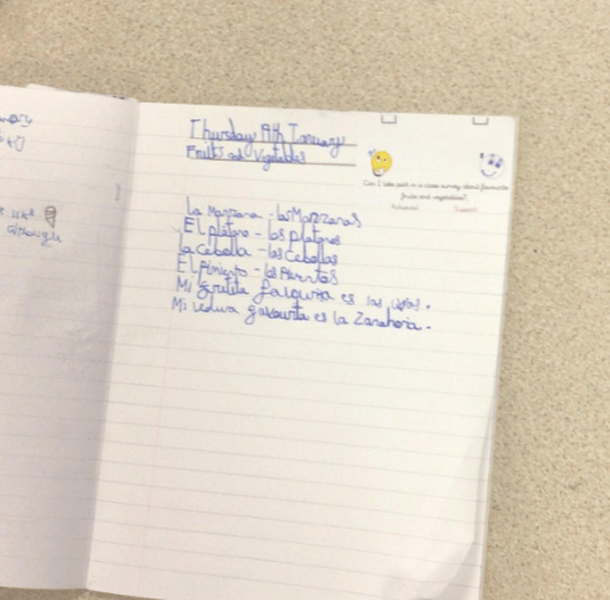 Thursday 19th January
Fruits and Vegetables
Can I take part in a class survey about favourite
fruits and vegetables?
Achieved
la Manzana - las Manzanas
El plátano - los platanos
la Cebolla - las Cebollas
El pimiento - los
Mi es las uvas.
Mi es la Zanahoria.
although